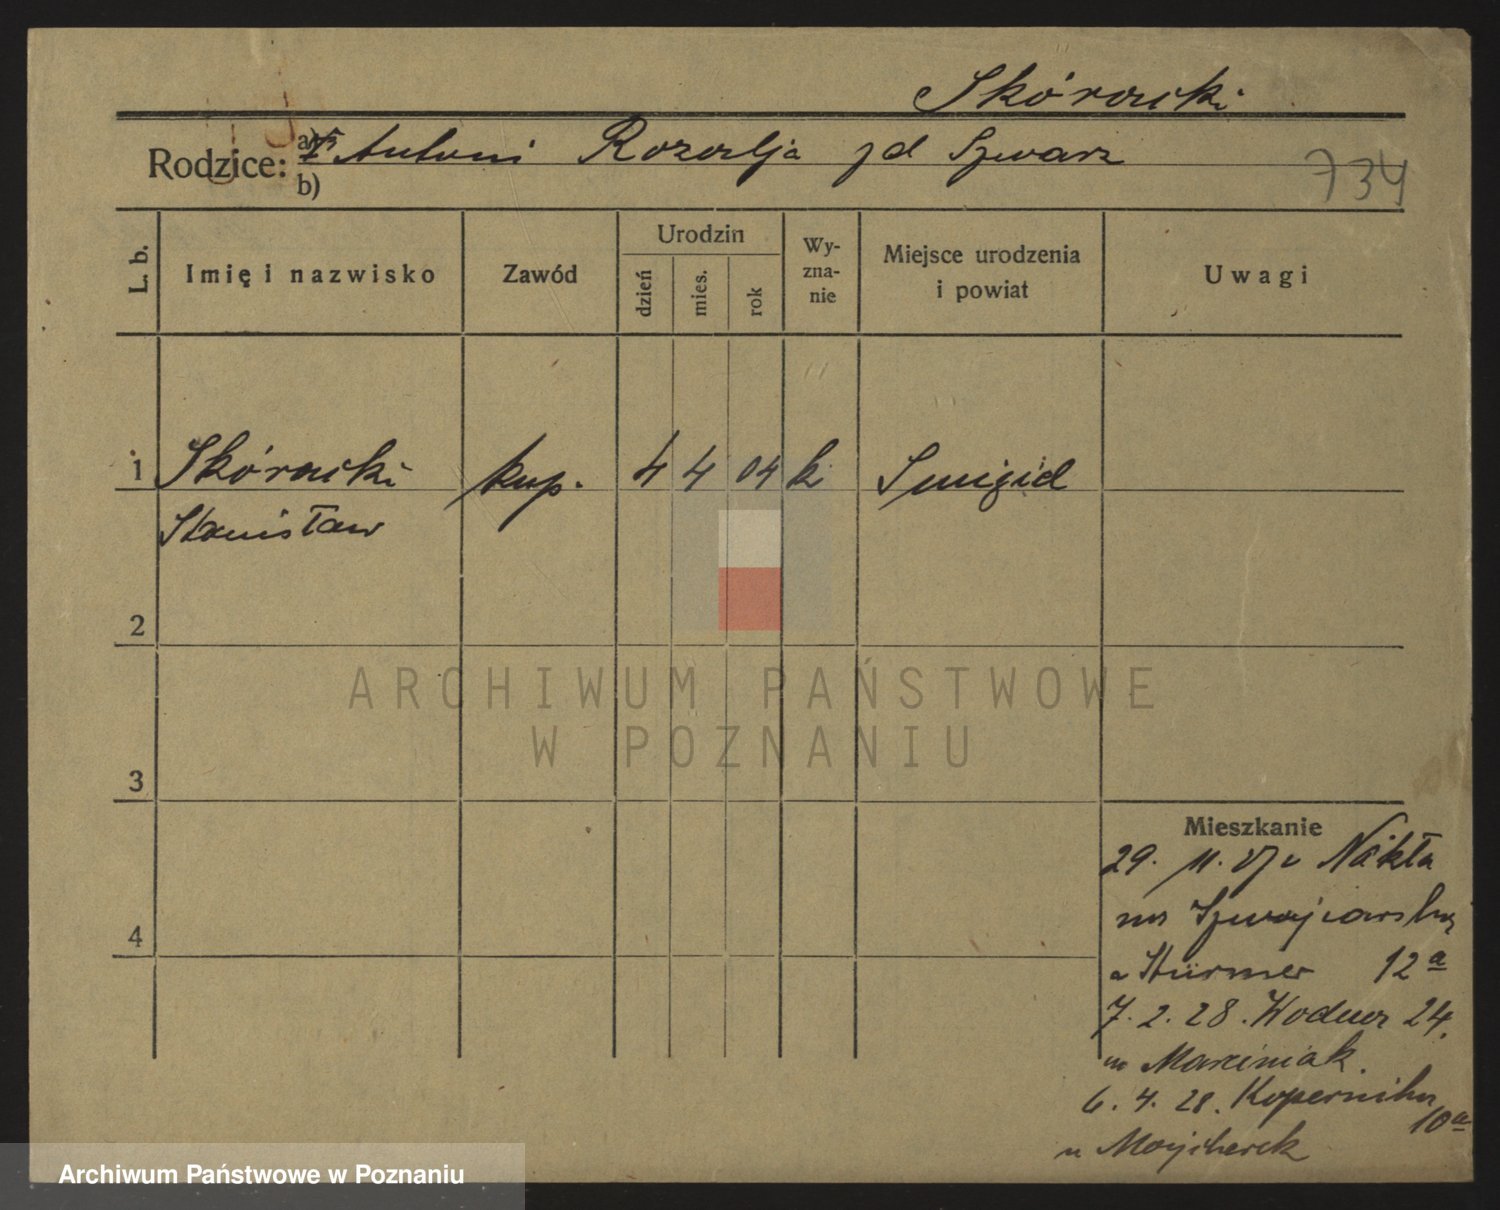 Skóracki
Rodzice: a) Antoni Rozalja zd Szwarz
b)
734
L. b.
Imię i nazwisko
Zawód
Urodzin
dzień
mies.
rok
Wy-
zna-
nie
Miejsce urodzenia
i powiat
Uwagi
1 Skóracki kup. 4 4 04 k. Śmigiel
Stanisław
2
3
4
Mieszkanie
29. 11. 27 z Nakła
Szwajcarską
u Stürmer 12a
7. 2. 28. Wodna 24.
u Marciniak.
6. 4. 28. Kopernika
10a
u
ARCHIWUM PAŃSTWOWE
W POZNANIU
Archiwum Państwowe w Poznaniu